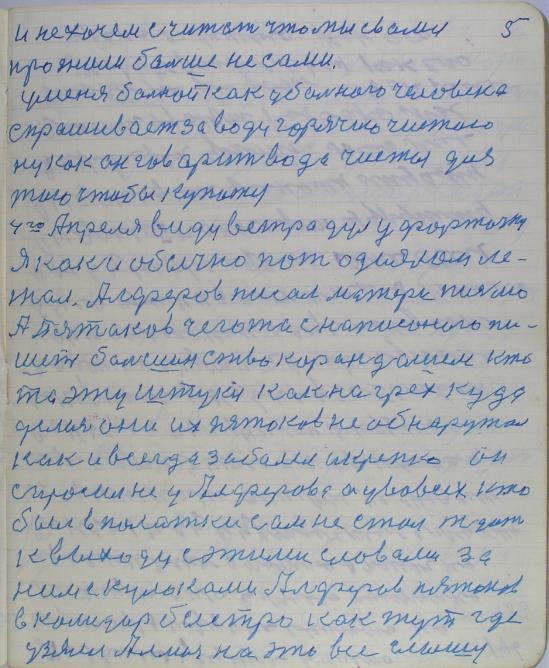 и не хочем считат что мы свами 5
прожили болше не сами.
у меня болной как у болного человека
спрашивает за воду горячию чистого
ну как он говарит вода чистая для
того чтобы купажу
4го Апреля ввиду ветра дул у форточку
я как и обычно пот одиялом ле-
жал. Алферов писал матери писмо
А Пятаков чегожа с написоного пи-
шет болшинство корандашем кто
то эту штуку как на грех куда
делая они их пятоков не обнаружал
как и всегда забалел и крепко он
спросил не у Алферова а увовсех кто
был в полатки сам не стал ждат
к выходу с этими словами за
ним с кулоками Алферов пятаков
в колидор быстро как жут где
узял Алмаз на это все слышу